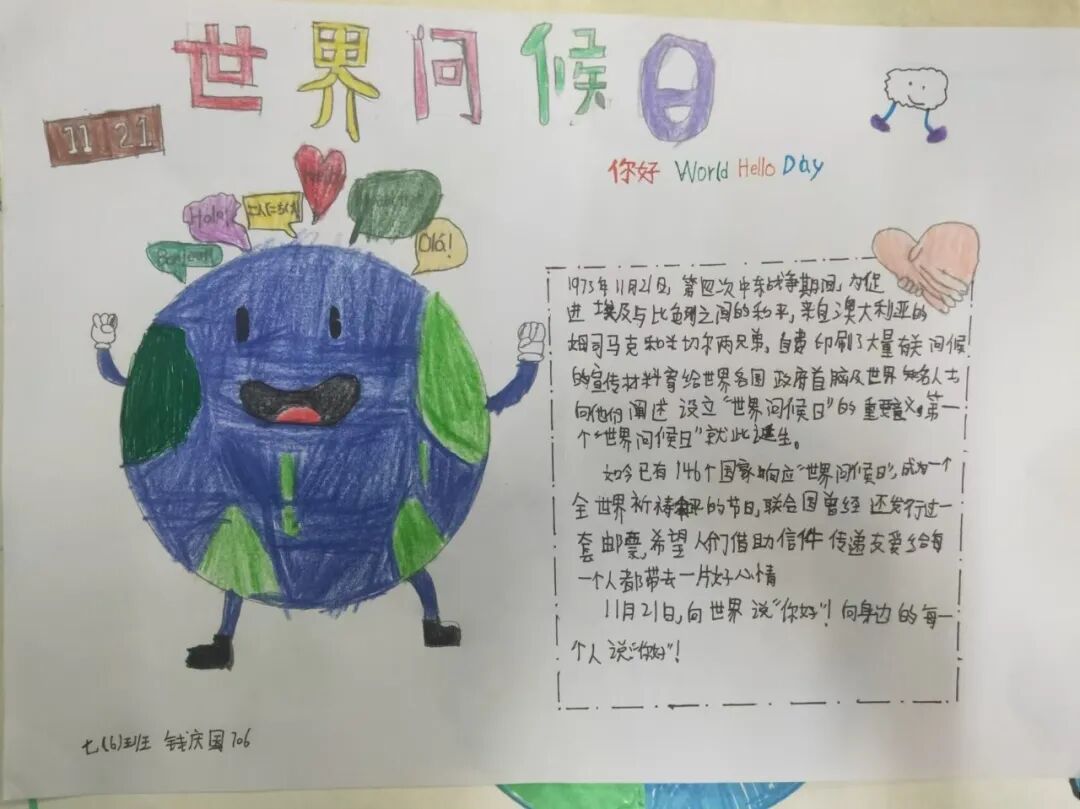 世界问候日
11 21
你好 World Hello Day
Hola!
こんにちは
Olá!
1973年11月21日,第四次中东战争期间,为促
进埃及与比色列之间的和平,亲自澳大利亚的
姆司马克和米切尔两兄弟,自费印刷了大量有关问候
的宣传材料寄给世界各国政府首脑及世界知名人士
向他们阐述设立“世界问候日”的重要意义,第一
个“世界问候日”就此诞生。
如今已有146个国家响应“世界问候日”,成为一个
全世界祈祷和平的节日,联合国曾经还发行过一
套邮票,希望人们借助信件传递友爱给每
一个人都带去一片好心情
11月21日,向世界说“你好”!向身边的每一
个人说“你好”!
七(6)班 钱庆国 706